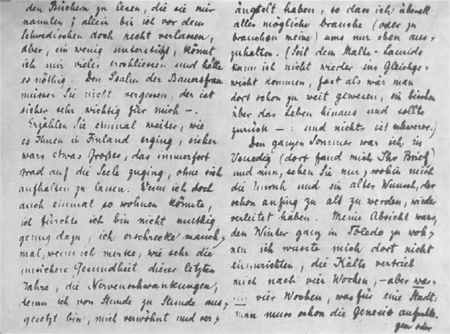 den Büchern zu lesen, die sie mir
nannten; allein bin ich vor dem
Schwedischen doch recht verlassen,
aber, ein wenig unterstützt, könnt
ich mir vieles erschliessen und hätte
es nöthig. Den Psalm der Bauersfrau
müssen Sie nicht vergessen, der ist
sicher sehr wichtig für mich —.
Erzählen Sie einmal weiter, wie
es Ihnen in Finland erging, sicher
wars etwas Großes, das immerfort
grad auf die Seele zuging, ohne sich
aufhalten zu lassen. Wenn ich doch
auch einmal so wohnen könnte,
ich fürchte ich bin nicht muthig
genug dazu, ich erschrecke manch-
mal, wenn ich merke, wie sehr die
unsichere Gesundheit dieser letzten
Jahre, die Nervenschwankungen,
denen ich von Stunde zu Stunde aus-
gesetzt bin, mich verwöhnt und ver-
ängstelt haben, so dass ich überall
alles mögliche brauche (oder zu
brauchen meine) ums nur eben aus-
zuhalten. (Seit dem Malte-Laurids
kann ich nicht wieder ins Gleichge-
wicht kommen, fast als wär man
dort schon zu weit gewesen, ein bischen
über das Leben hinaus und sollte
zurück —: und nichts ist schwerer.)
Den ganzen Sommer war ich in
Venedig (dort fand mich Ihr Brief)
und nun, sehen Sie nur, wohin mich
die Unruh und ein alter Wunsch, der
schon anfing zu alt zu werden, wieder
verleitet haben. Meine Absicht wars,
den Winter ganz in Toledo zu woh-
nen ich wusste mich dort nicht
einzurichten, die Kälte vertrieb
mich nach vier Wochen, — aber was
vier Wochen, was für eine Stadt:
man muss schon die Genesis aufschla-
gen oder